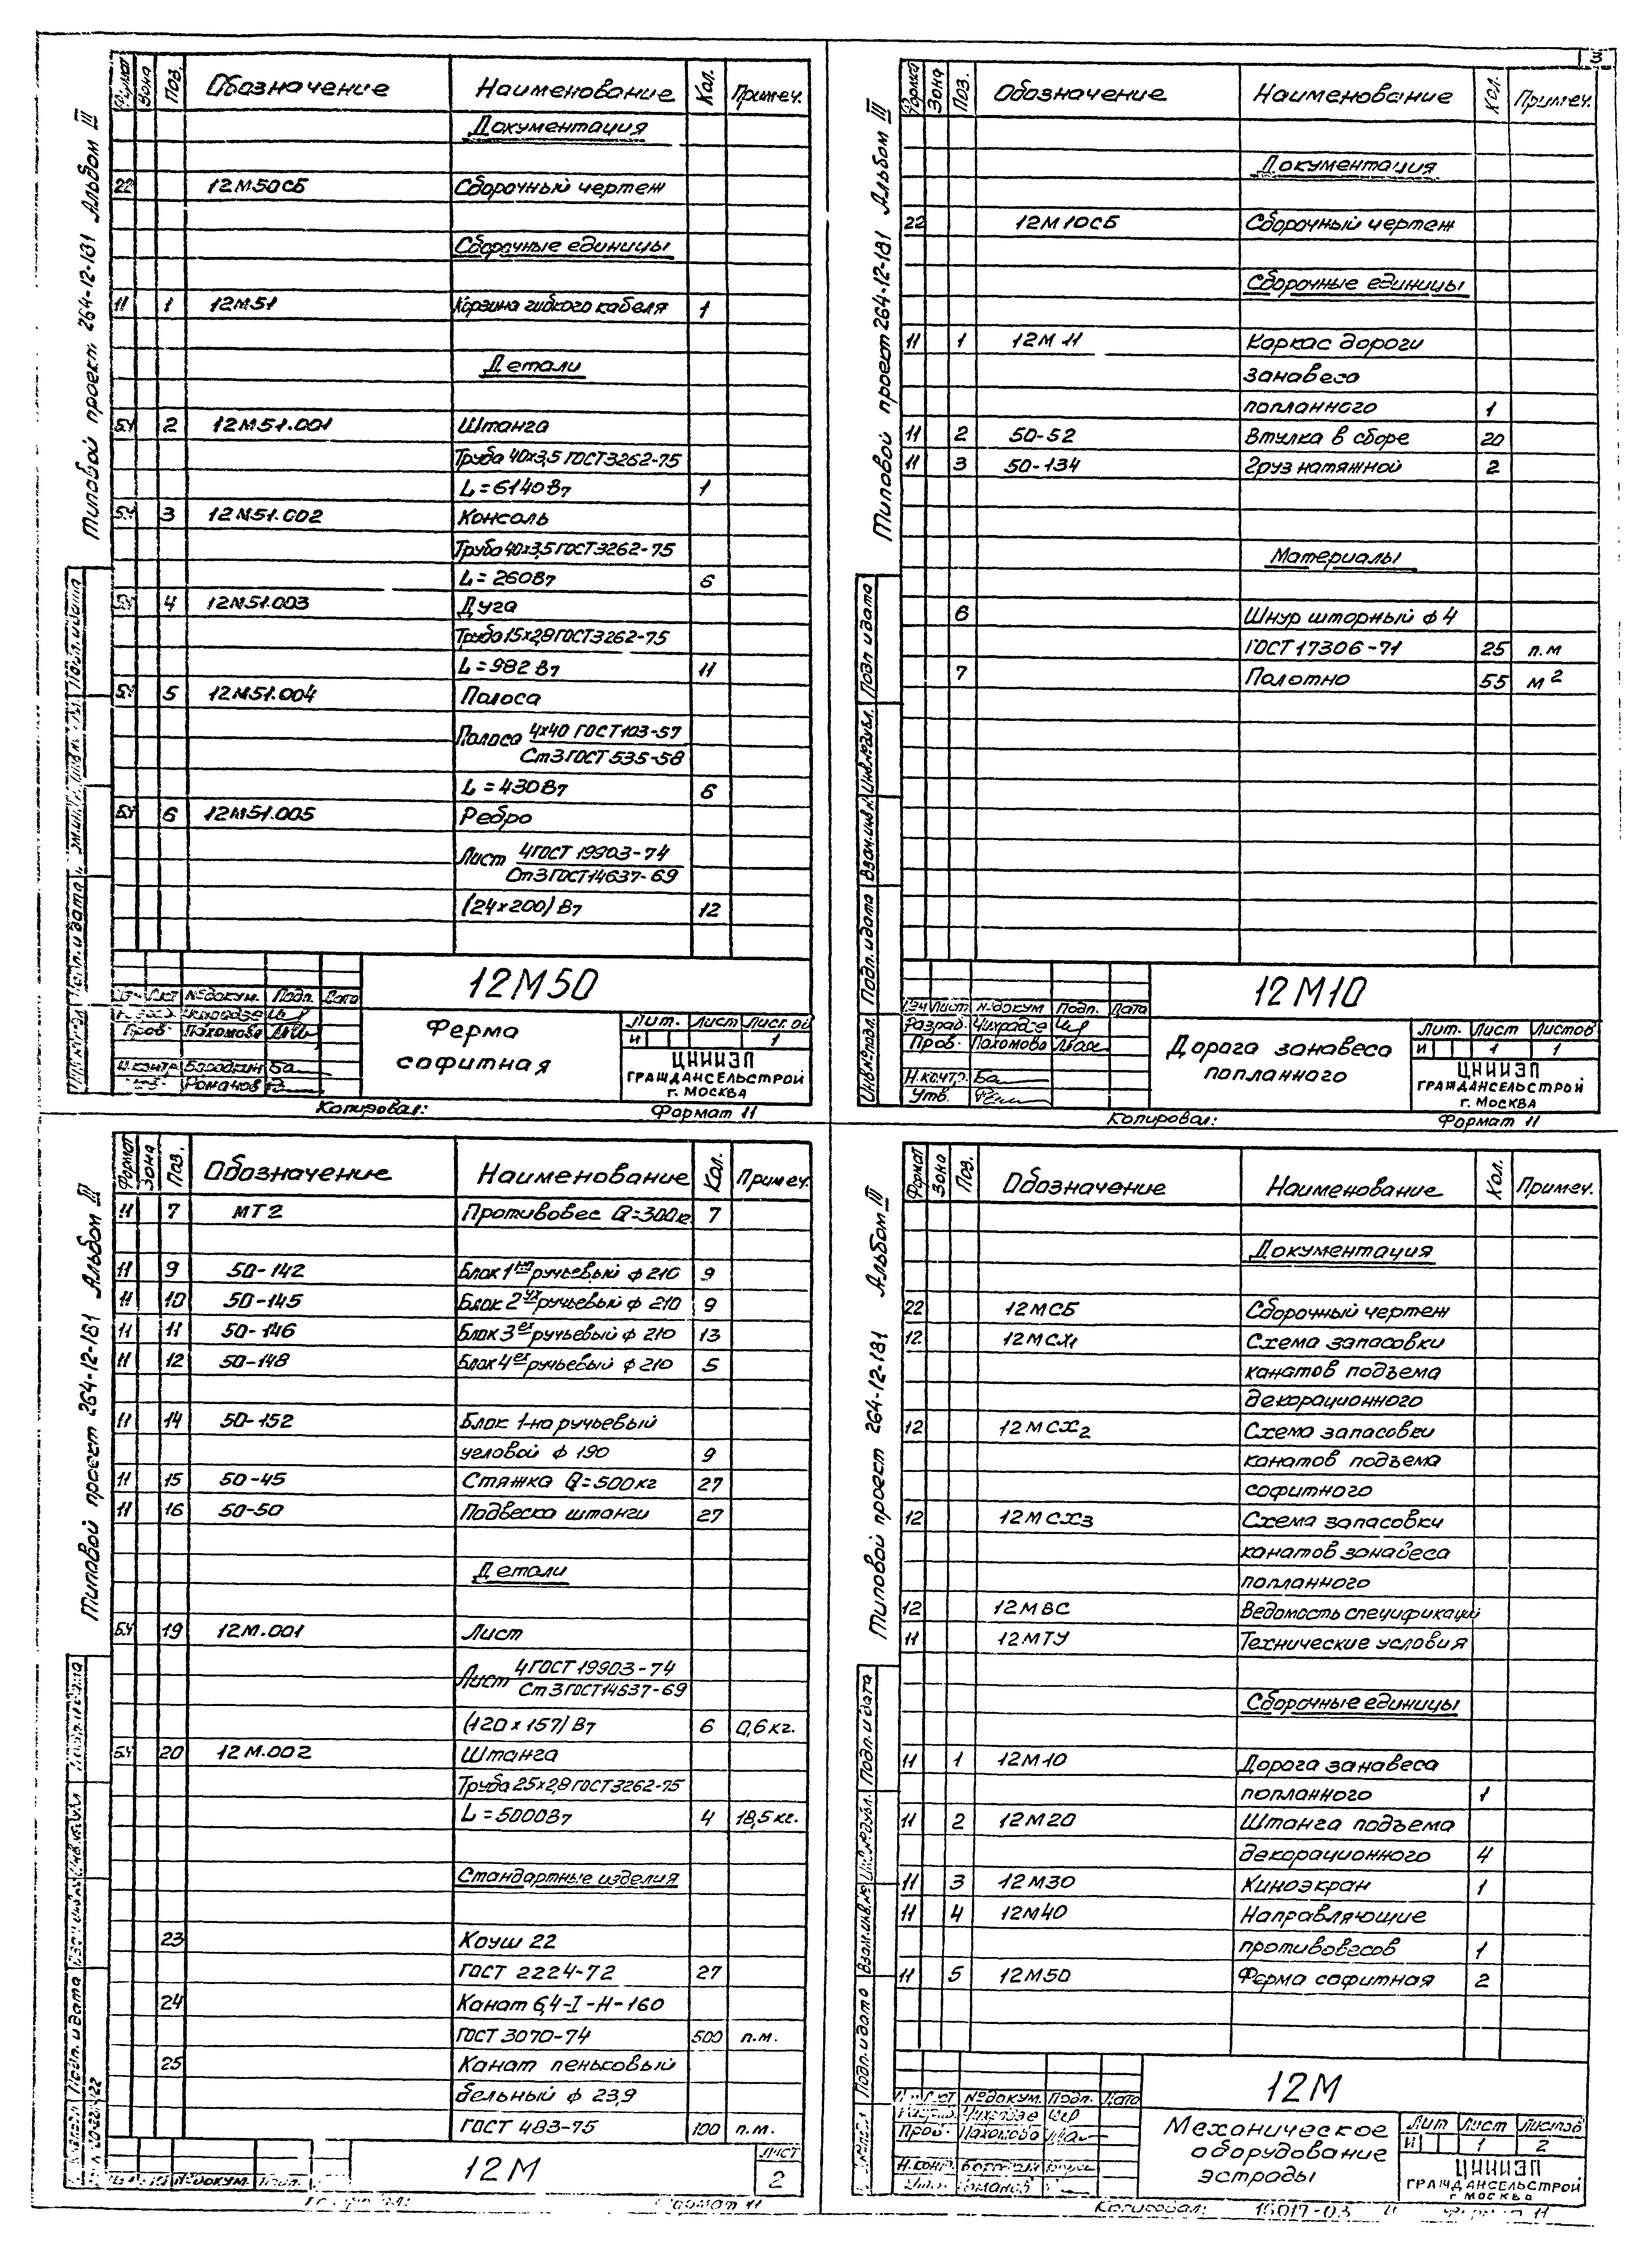 3
Типовой проект 264-12-181 Альбом III
Формат Зона Поз. Обозначение Наименование Кол. Примеч.
Документация
22 12М50СБ Сборочный чертеж
Сборочные единицы
11 1 12М51 Корзина гибкого кабеля 1
Детали
БЧ 2 12М51.001 Штанга
Труба 40х3,5 ГОСТ3262-75
L=6140 В7 1
БЧ 3 12М51.002 Консоль
Труба 40х3,5 ГОСТ3262-75
L=260В7 6
БЧ 4 12М51.003 Дуга
Труба 15х2,8 ГОСТ3262-75
L=982 В7 11
БЧ 5 12М51.004 Полоса
Полоса 4х40 ГОСТ103-57
Ст3 ГОСТ 535-58
L=430В7 6
БЧ 6 12М51.005 Ребро
Лист 4ГОСТ 19903-74
Ст3ГОСТ14637-69
(24х200) В7 12
12М50
№докум. Подп. Дата
Пров. Пахомова
Ферма
софитная
Лит. Лист
И 1
ЦНИИЭП
ГРАЖДАНСЕЛЬСТРОЙ
г. МОСКВА
Н.контр. Бородкин
Романов
Копировал: Формат 11
Типовой проект 264-12-181 Альбом III
Формат Зона Поз. Обозначение Наименование Кол. Примеч.
Документация
22 12М10СБ Сборочный чертеж
Сборочные единицы
11 1 12М 11 Каркас дороги
занавеса
попланного 1
11 2 50-52 Втулка в сборе 20
11 3 50-134 Груз натяжной 2
Материалы
6 Шнур шторный ф 4
ГОСТ 17306-71 25 п.м
7 Полотно 55 м2
Подп. и дата
Взам.инв.№
Подп. и дата
Инв.№подл.
12М10
Изм Лист №докум Подп. Дата
Разраб. Чихрадзе
Пров. Пахомова
Н.контр.
Утв.
Дорога занавеса
попланного
Лит. Лист Листов
И 1 1
ЦНИИЭП
ГРАЖДАНСЕЛЬСТРОЙ
г. МОСКВА
Копировал: Формат 11
Типовой проект 264-12-181 Альбом III
Формат Зона Поз. Обозначение Наименование Кол. Примеч.
11 7 МТ2 Противовес Q=300кг 7
11 9 50-142 Блок 1но ручьевый ф 210 9
11 10 50-145 Блок 2ух ручьевый ф 210 9
11 11 50-146 Блок 3ех ручьевый ф 210 13
11 12 50-148 Блок 4ех ручьевый ф 210 5
11 14 50-152 Блок 1-но ручьевый
угловой ф 190 9
11 15 50-45 Стяжка Q=500кг 27
11 16 50-50 Подвеска штанги 27
Детали
БЧ 19 12М.001 Лист
Лист 4ГОСТ 19903-74
Ст3ГОСТ14637-69
(120 х 157) В7 6 0,6кг.
БЧ 20 12М.002 Штанга
Труба 25х2,8 ГОСТ3262-75
L=5000В7 4 18,5кг.
Стандартные изделия
23 Коуш 22
ГОСТ 2224-72 27
24 Канат 6,4-I-Н-160
ГОСТ 3070-74 500 п.м.
25 Канат пеньковый
бельный ф 23,9
ГОСТ 483-75 100 п.м.
12М
№докум.
Лист
2
Формат 11
Типовой проект 264-12-181 Альбом III
Формат Зона Поз. Обозначение Наименование Кол. Примеч.
Документация
22 12МСБ Сборочный чертеж
12 12МСХ1 Схема запасовки
канатов подъема
декорационного
12 12МСХ2 Схема запасовки
канатов подъема
софитного
12 12МСХ3 Схема запасовки
канатов занавеса
попланного
12 12МВС Ведомость спецификаций
11 12МТУ Технические условия
Сборочные единицы
11 1 12М10 Дорога занавеса
попланного 1
11 2 12М20 Штанга подъема
декорационного 4
11 3 12М30 Киноэкран 1
11 4 12М40 Направляющие
противовесов 1
11 5 12М50 Ферма софитная 2
Подп. и дата
Взам.инв.№
Подп. и дата
12М
№докум. Подп. Дата
Пров. Пахомова
Н.контр.
Механическое
оборудование
эстрады
Лит Лист Листов
И 1 2
ЦНИИЭП
ГРАЖДАНСЕЛЬСТРОЙ
г МОСКВА
Копировал: 15017-03 4 Формат 11